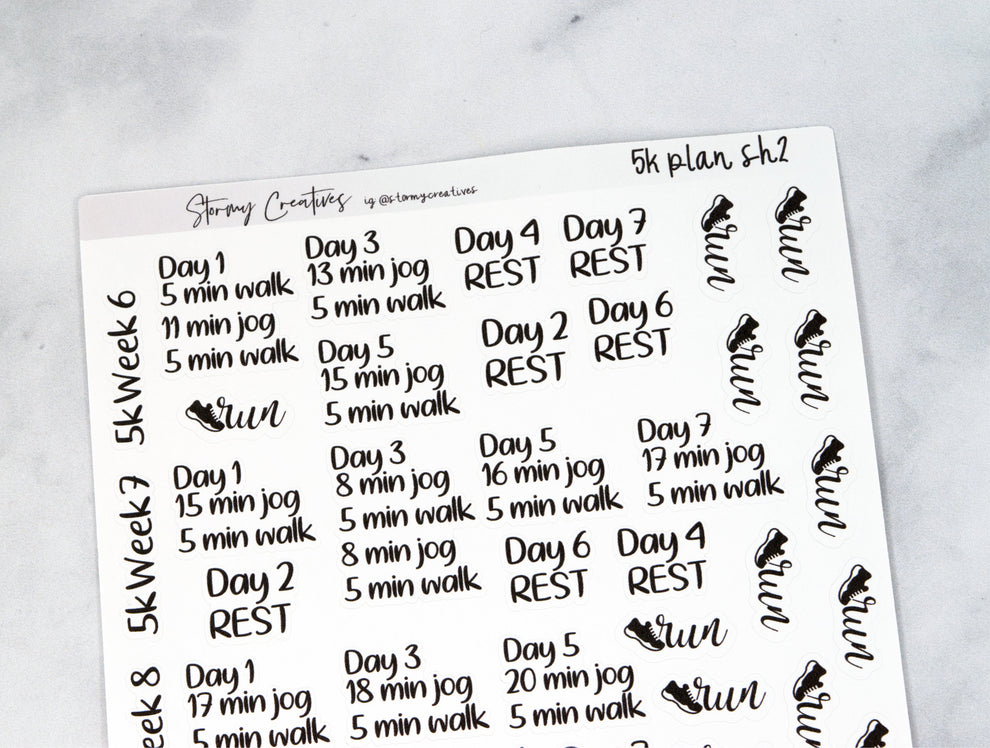 5k plan sh2
Stormy Creatives ig @stormycreatives
5k Week 6
Day 1
5 min walk
11 min jog
5 min walk
run
Day 3
13 min jog
5 min walk
Day 5
15 min jog
5 min walk
Day 4
REST
Day 7
REST
Day 2
REST
Day 6
REST
run
run
run
run
5k Week 7
Day 1
15 min jog
5 min walk
Day 2
REST
Day 3
8 min jog
5 min walk
8 min jog
5 min walk
Day 5
16 min jog
5 min walk
Day 7
17 min jog
5 min walk
Day 6
REST
Day 4
REST
run
run
run
run
eek 8
Day 1
17 min jog
5 min walk
Day 3
18 min jog
5 min walk
Day 5
20 min jog
5 min walk
run
run